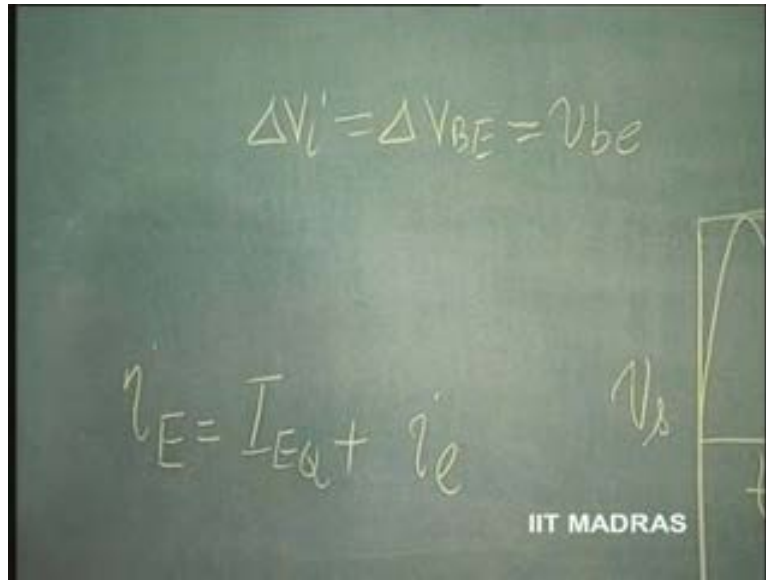 ΔVi = ΔVBE = vbe
iE = IEQ + ie
vs
t
IIT MADRAS